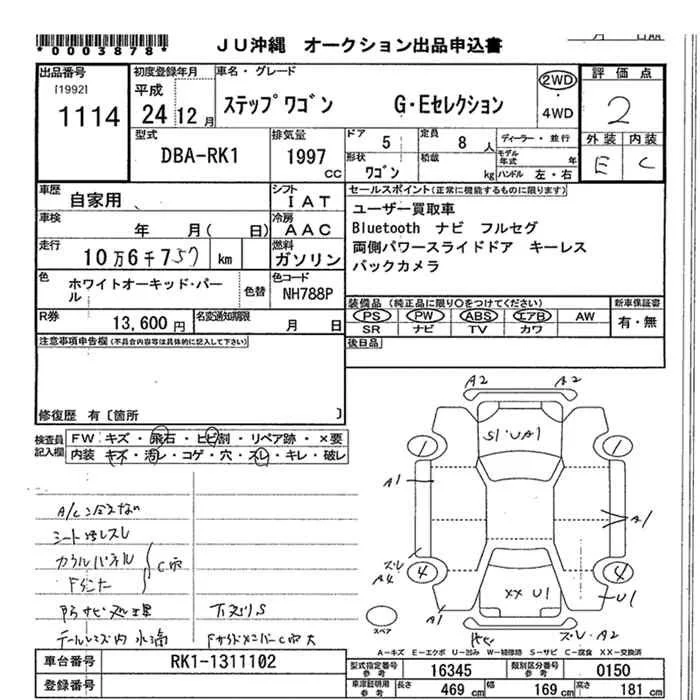 *0003878* JU沖縄 オークション出品申込書
出品番号 [1992] 1114
初度登録年月 平成 24 12 月
車名・グレード ステップワゴン G・Eセレクション
2WD ・ 4WD
評価点 2
外装 内装
E C
型式 DBA-RK1
排気量 1997 CC
ドア 5 定員 8 人
形状 ワゴン 積載 kg
ディーラー・並行
モデル年式 年
ハンドル 左・右
車歴 自家用
シフト IAT
車検 年 月( 日)
冷房 AAC
走行 10万6千757 km
燃料 ガソリン
色 ホワイトオーキッド・パール 色替
色コード NH788P
R券 13,600 円 名変通知期限 月 日
セールスポイント(正常に機能するものに限ります)
ユーザー買取車
Bluetooth ナビ フルセグ
両側パワースライドドア キーレス
バックカメラ
装備品 (純正品に限り○をつけてください) 新車保証書
PS PW ABS エアB AW 有・無
SR ナビ TV カワ
後日品
注意事項申告欄(不具合内容等は具体的に記入して下さい)
修復歴 有〔箇所 〕
検査員記入欄
FW キズ・飛石・ヒビ割・リペア跡・×要
内装 キズ・汚レ・コゲ・穴・スレ・キレ・破レ
シート汚レスレ
カウルパネル
C穴
下廻りS
テールレンズ内 水滴
A2 A2
S1・UA1
1 1
A1 A1
スレ A4
4 4
XX U1
U1
A1
スレ・A2
スペア
A-キズ E-エクボ U-凹み W-補修跡 S-サビ C-腐食 XX-交換済
車台番号 RK1-1311102
登録番号
型式指定番号 参考 16345 類別区分番号 参考 0150
車庫証明用 参考 長さ 469 cm 幅 169 cm 高さ 181 cm